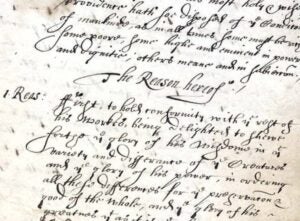 providence hath so disposed of ye Condition
of mankinde as in all times some must be rich
some poore, some highe and eminent in power
and dignitie; others meane and in subieccion.
The Reason hereof.
1. Reas: First, to hold conformity with ye rest of
his workes, being delighted to shewe
forthe ye glory of his wisdome in ye
variety and differance of ye Creatures
and ye glory of his power, in ordering
all these differences for ye preservacion &
good of the whole, and ye glory of his
greatnes yt as it is